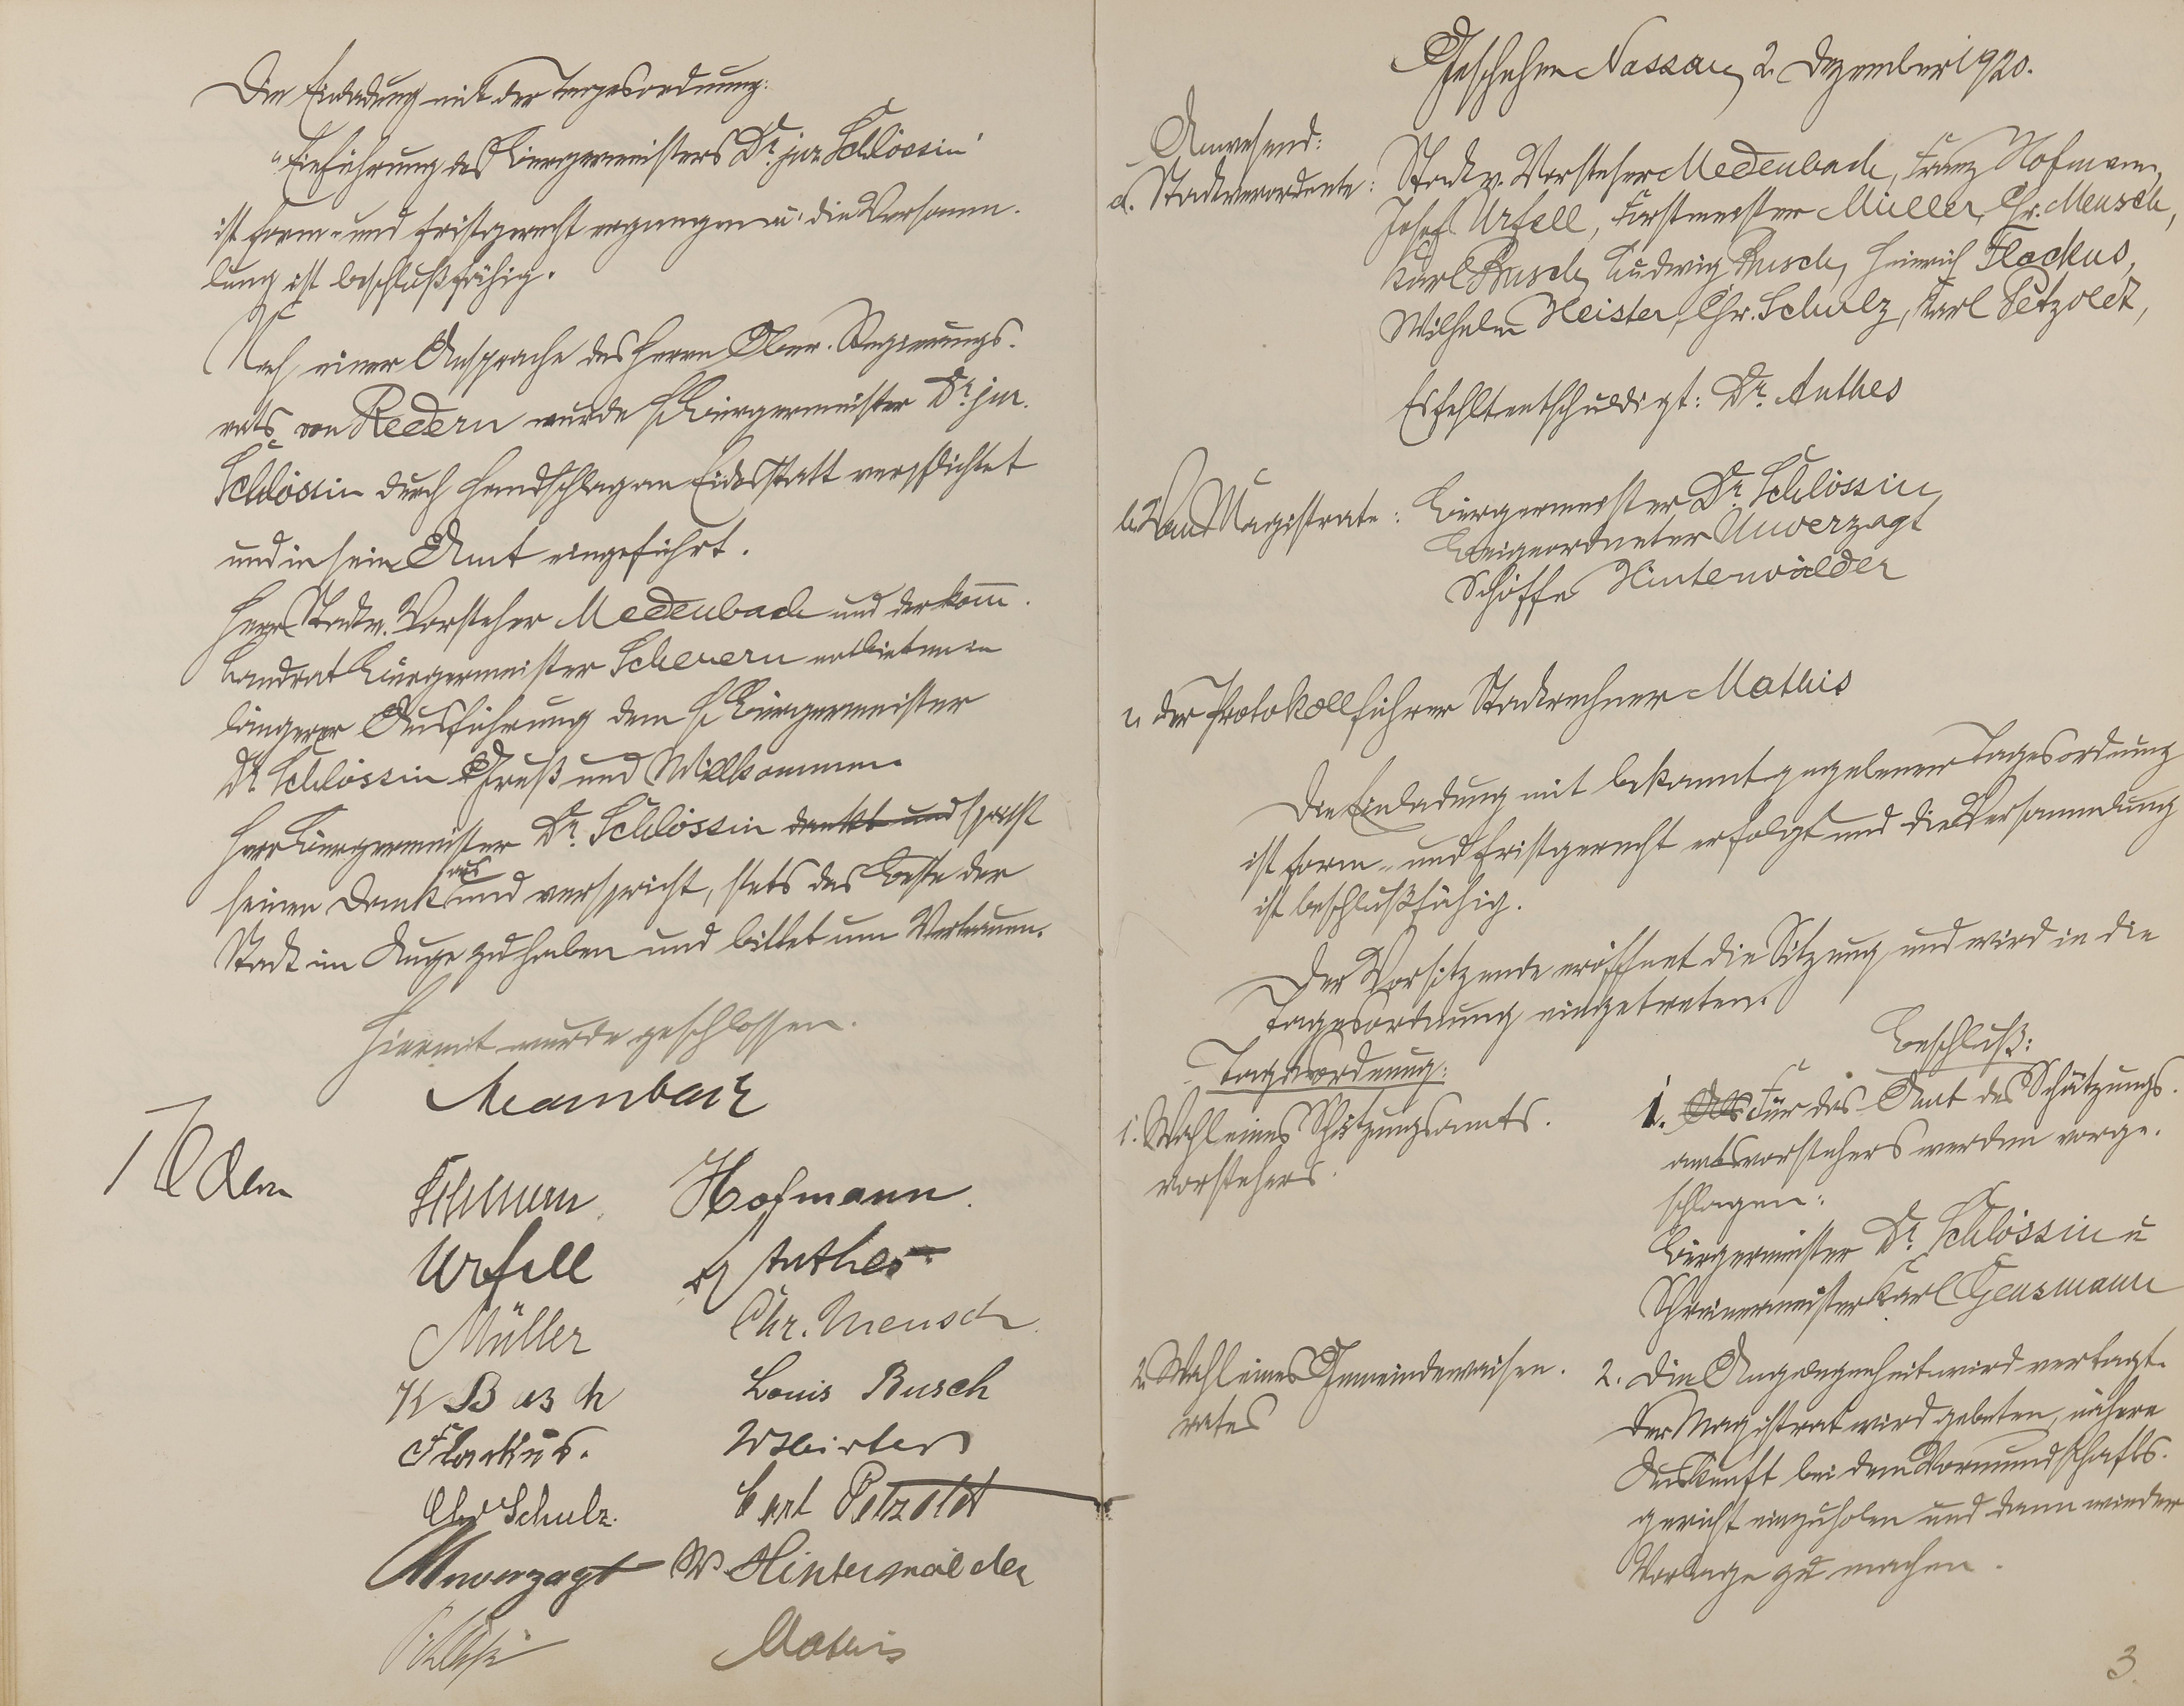 Die Einladung mit der Tagesordnung:
"Einführung des Bürgermeisters Dr. jur. Schlössin"
ist form- und fristgerecht ergangen u. die Versamm-
lung ist beschlußfähig.
Nach einer Ansprache des Herrn Ober-Regierungs-
rats von Redern wurde H. Bürgermeister Dr. jur.
Schlössin durch Handschlag an Eidesstatt verpflichtet
und in sein Amt eingeführt.
Herr Stadtv. Vorsteher Medenbach und der kom̄.
Landrat Bürgermeister Scheuern entbieten in
längerer Ausführung dem H. Bürgermeister
Dr. Schlössin Gruß und Willkommen.
Herr Bürgermeister Dr. Schlössin dankt und spricht
seinen Dank aus und verspricht, stets das Beste der
Stadt im Auge zu haben und bittet um Vertrauen.
Hiermit wurde geschlossen.
Medenbach
Redern
Scheuern Hofmann.
Urfell Anthes
Müller Chr. Mensch
K Busch Louis Busch
Flockus. W Heister
Chr Schulz. Carl Petzoldt
Unverzagt W. Hinterwälder
Schlössin Mathis
Geschehen Nassau, 2. Dezember 1920.
Anwesend:
a. Stadtverordnete: Stadtv. Vorsteher Medenbach, Franz Hofmann,
Josef Urfell, Forstmeister Müller, Chr. Mensch,
Karl Busch, Ludwig Busch, Heinrich Flockus,
Wilhelm Heister, Chr. Schulz, Karl Petzoldt,
Es fehlt entschuldigt: Dr. Anthes
b. Vom Magistrate: Bürgermeister Dr. Schlössin,
Beigeordneter Unverzagt
Schöffe Hinterwälder
u. der Protokollführer Stadtrechner Mathis
Die Einladung mit bekannt gegebener Tagesordnung
ist form- und fristgerecht erfolgt und die Versammlung
ist beschlußfähig.
Der Vorsitzende eröffnet die Sitzung und wird in die
Tagesordnung eingetreten.
Tagesordnung:
Beschluß:
1. Wahl eines Schätzungsamts-
vorstehers.
1. Als Für das Amt des Schätzungs-
amtsvorstehers werden vorge-
schlagen:
Bürgermeister Dr. Schlössin u
Schreinermeister Karl Gensmann
2. Wahl eines Gemeindewaisen-
rates
2. Die Angelegenheit wird vertagt.
Der Magistrat wird gebeten, nähere
Auskunft bei dem Vormundschafts-
gericht einzuholen und dann wieder
Vorlage zu machen.
3.